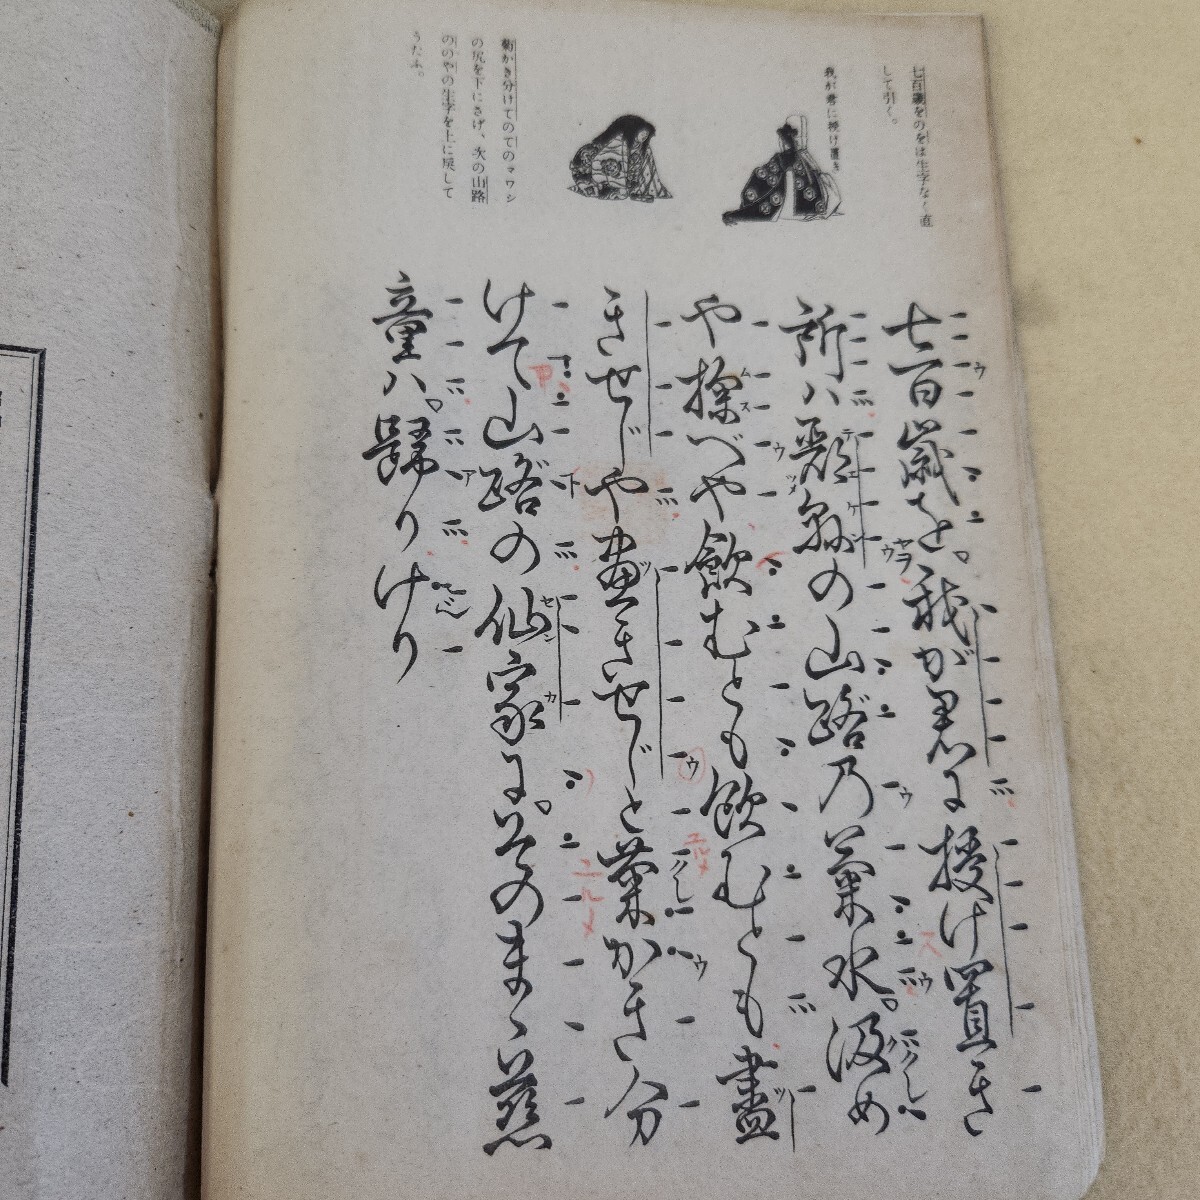 七百歳をのをは生字なく直
して引く。
我が君に授け置き
菊かき分けてのてのマワシ
の尻を下にさげ、次の山路
ののやの生字を上に戻して
うたふ。
七百歳を。我が君に授け置き
所ハ酈縣の山路乃菊水。汲め
や掬べや飲むとも飲むとも盡
きせじや盡きせじと菊かき分
けて山路の仙家に。そのまゝ慈
童ハ。歸りけり